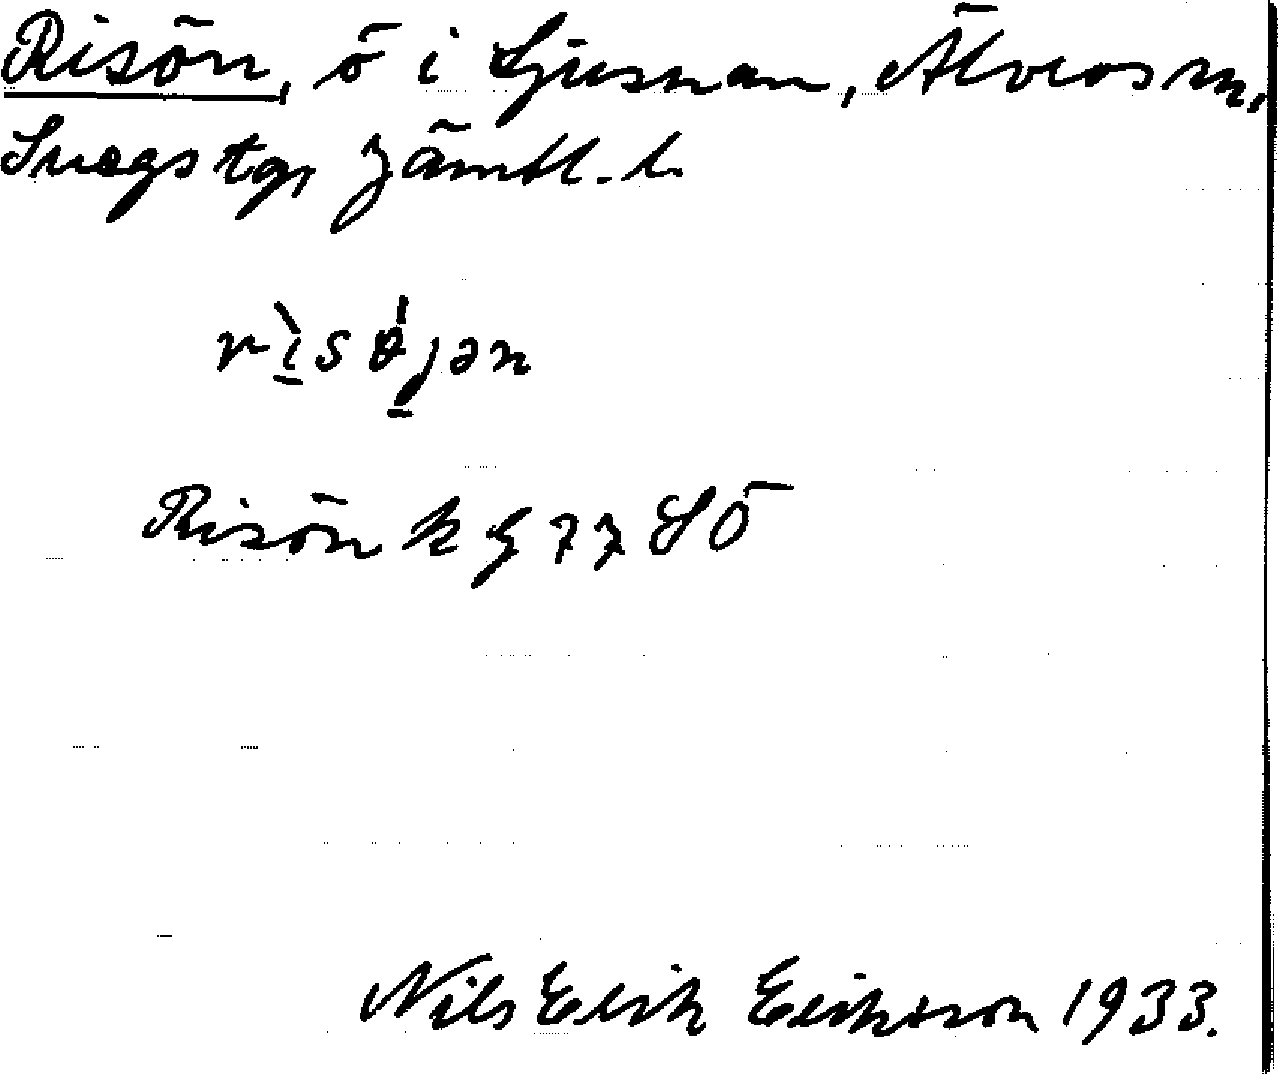 Risön, ö i Ljusnan, Älvros sn,
Svegs tg, Jämtl. l.
rìsɵ́jən
Risön k g 77 SÖ
Nils Erik Eriksson 1933.